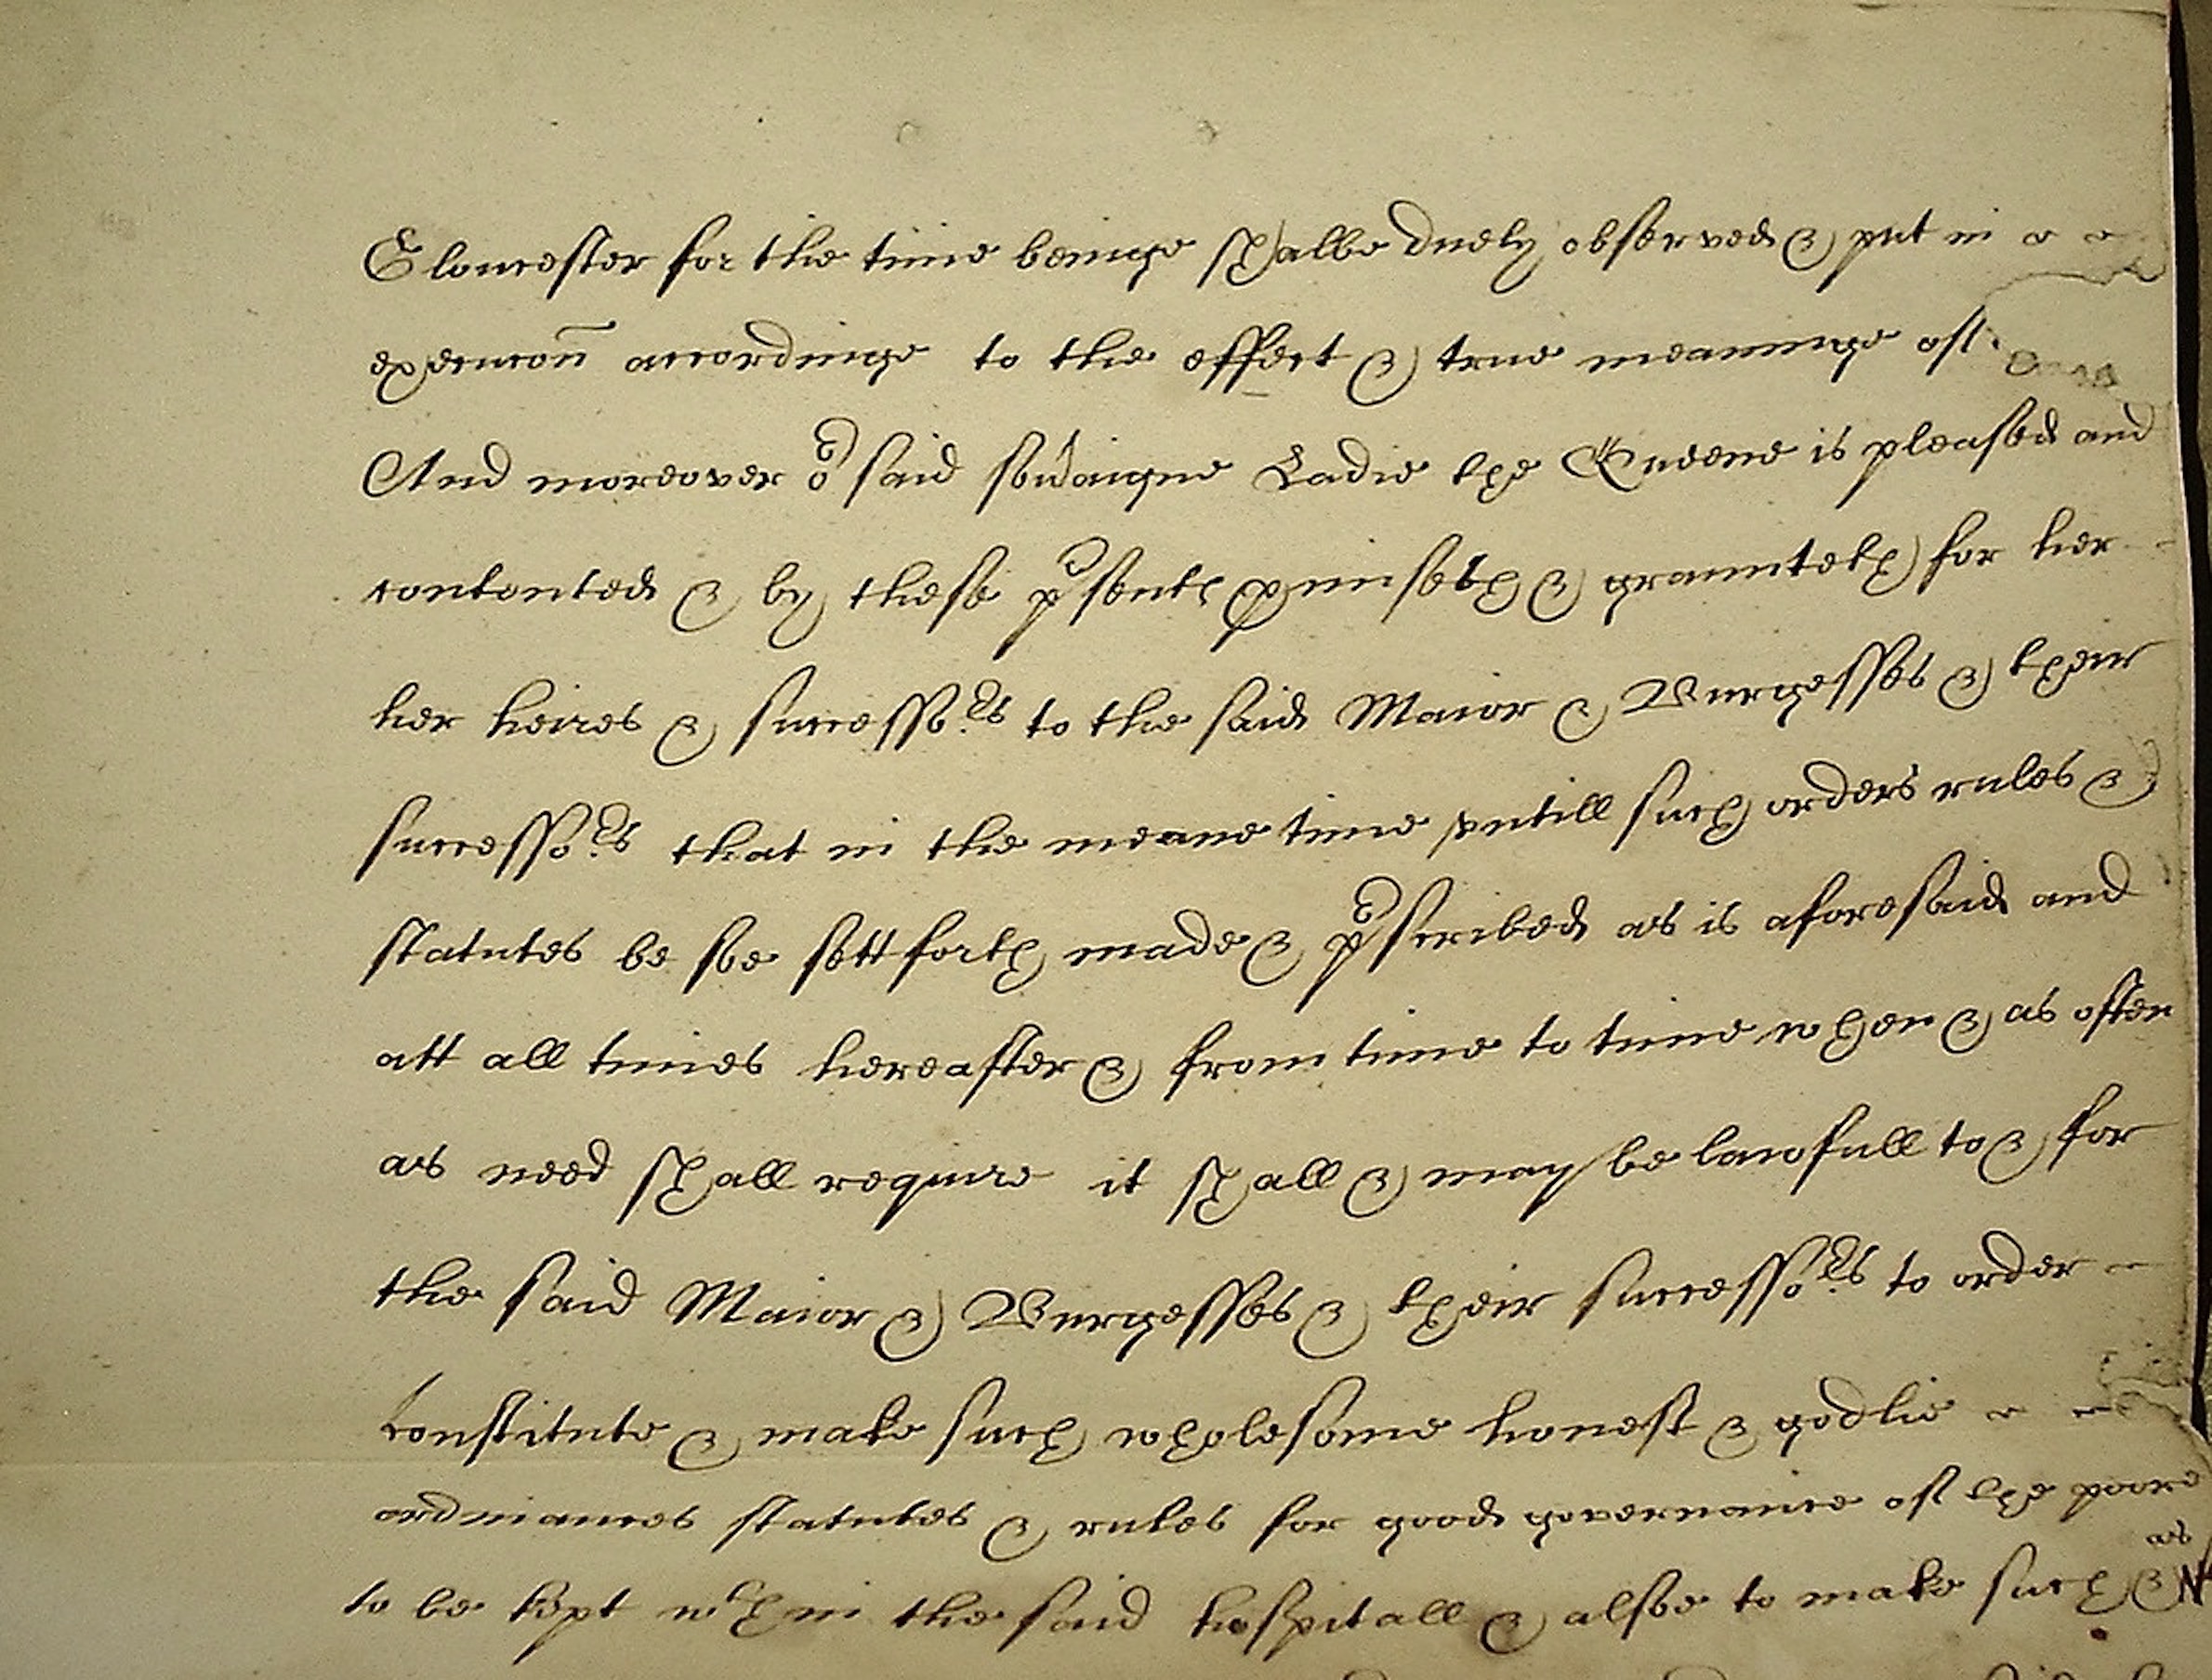 Gloucester for the time beinge shalbe duely observed & put in
execucon̄ accordinge to the effect & true meaninge of
And moreover oʳ said sov̾aigne Ladie the Queene is pleased and
contented & by these p̾sentꝭ ꝓmiseth & graunteth for her
her heires & successoʳs to the said Maior & Burgesses & their
successoʳs that in the meane time vntill such orders rules &
statutes be soe sett forth made & p̾scribed as is aforesaid and
att all times hereafter & from time to time when & as often
as need shall require it shall & may be lawfull to & for
the said Maior & Burgesses & their successoʳs to order
constitute & make such wholesome honest & godlie
ordinances statutes & rules for good governance of the poore
as
to be kept wᵗhin the said hospitall & alsoe to make such &